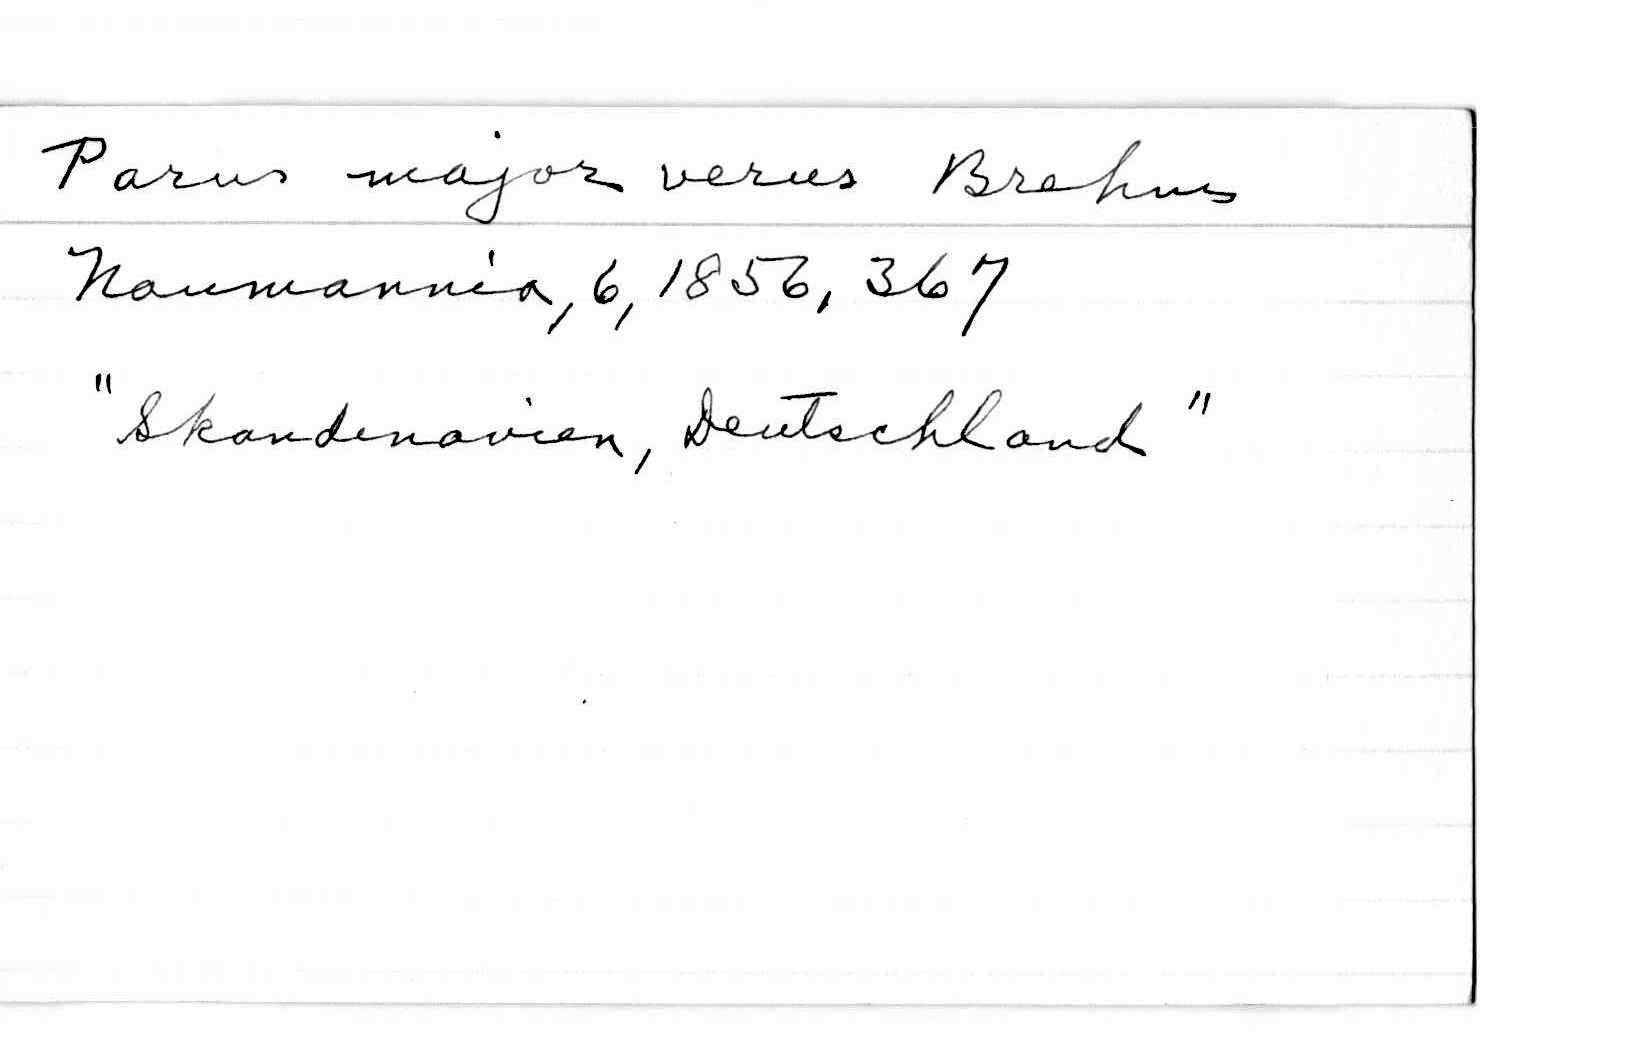 Parus major verus Brehm
Naumannia, 6, 1856, 367
"Skandenavien, Deutschland"